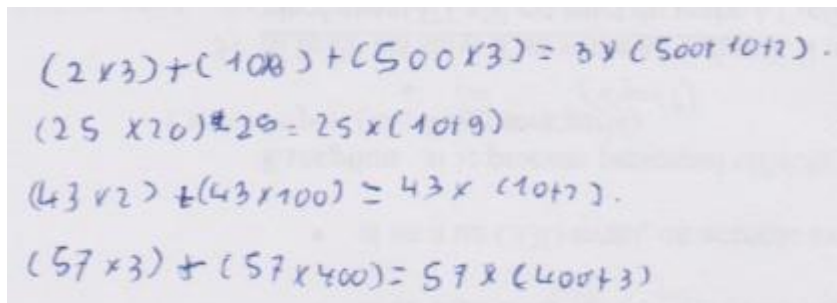 (2x3)+(10x3)+(500x3) = 3x(500+10+2).
(25 x20) 25 = 25x(10+9)
(43x2) +(43x100) = 43x (10+2).
(57x3) + (57x400) = 57x(400+3)